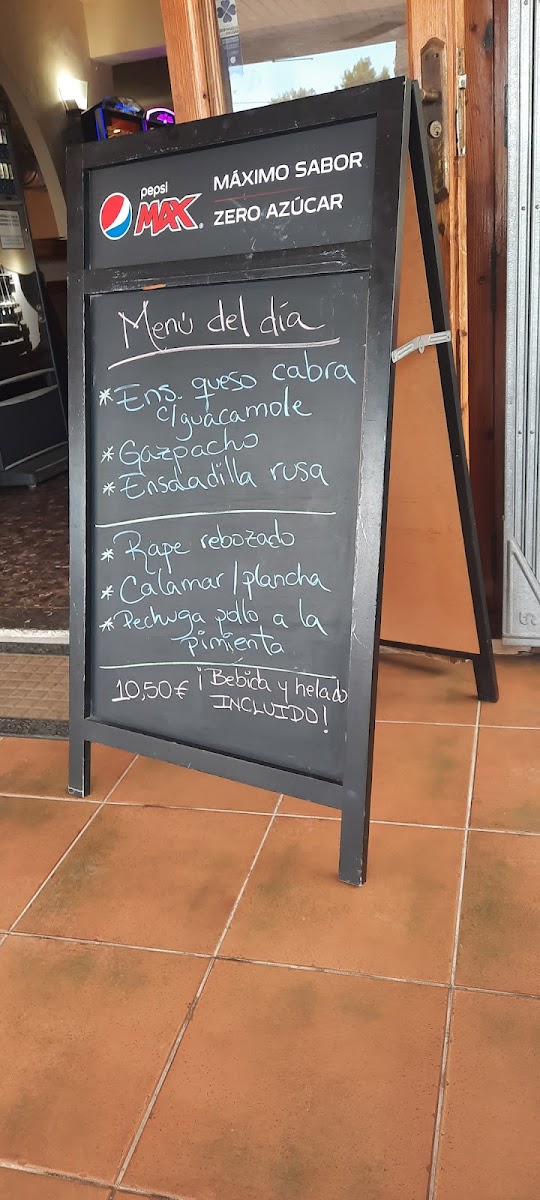 pepsi
MAX
MÁXIMO SABOR
ZERO AZÚCAR
Menú del día
* Ens. queso cabra
c/guacamole
* Gazpacho
* Ensaladilla rusa
* Rape rebozado
* Calamar/plancha
* Pechuga pollo a la
pimienta
10,50€ ¡Bebida y helado
INCLUIDO!